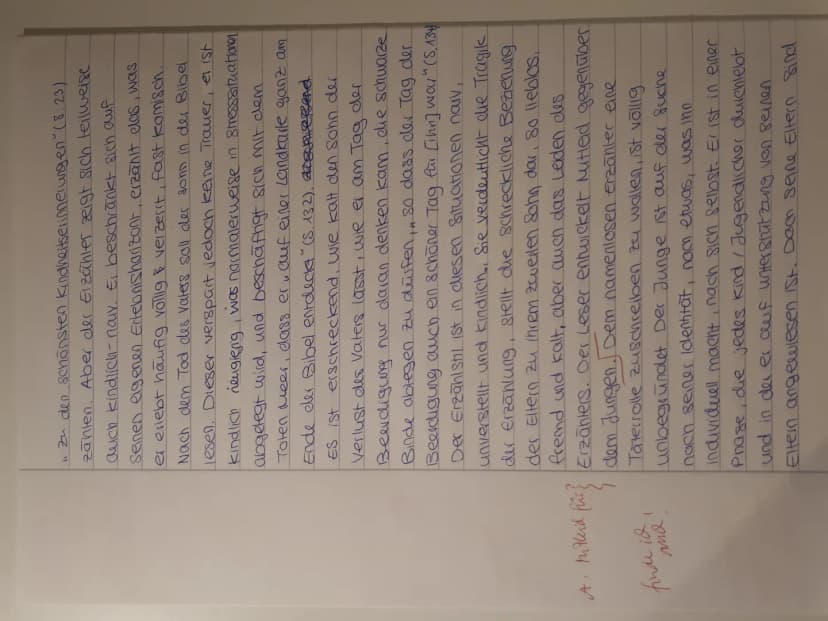 "zu den schönsten Kindheitserinnerungen" (S. 23)
zählen. Aber der Erzähler zeigt sich teilweise
auch kindlich-naiv. Er beschränkt sich auf
seinen eigenen Erlebnishorizont, erzählt das, was
er erlebt häufig völlig verzerrt, fast komisch.
Nach dem Tod des Vaters soll der Sohn in der Bibel
lesen. Dieser verspürt jedoch keine Trauer, er ist
kindlich neugierig, was normalerweise in Stresssituationen
abgelegt wird, und beschäftigt sich mit dem
Toten Meer, dass er „auf einer Landkarte ganz am
Ende der Bibel entdeckt" (S. 132).
Es ist erschreckend, wie kalt den Sohn der
Verlust des Vaters lässt, wie er am Tag der
Beerdigung nur daran denken kann, die schwarze
Binde ablegen zu dürfen, „so dass der Tag der
Beerdigung auch ein schöner Tag für [ihn] war" (S. 134)
Der Erzählstil ist in diesen Situationen naiv,
unverstellt und kindlich. Sie verdeutlicht die Tragik
der Erzählung, stellt die schreckliche Beziehung
der Eltern zu ihrem zweiten Sohn dar, so lieblos,
fremd und kalt, aber auch das Leiden des
Erzählers. Der Leser entwickelt Mitleid gegenüber
dem Jungen. Dem namenlosen Erzähler eine
Täterrolle zuschreiben zu wollen, ist völlig
unbegründet. Der Junge ist auf der Suche
nach seiner Identität, nach etwas, was ihn
individuell macht, nach sich selbst. Er ist in einer
Phase, die jedes Kind / Jugendlicher durchlebt
und in der er auf Unterstützung von seinen
Eltern angewiesen ist. Doch seine Eltern sind
A: Mitleid für
finde ich